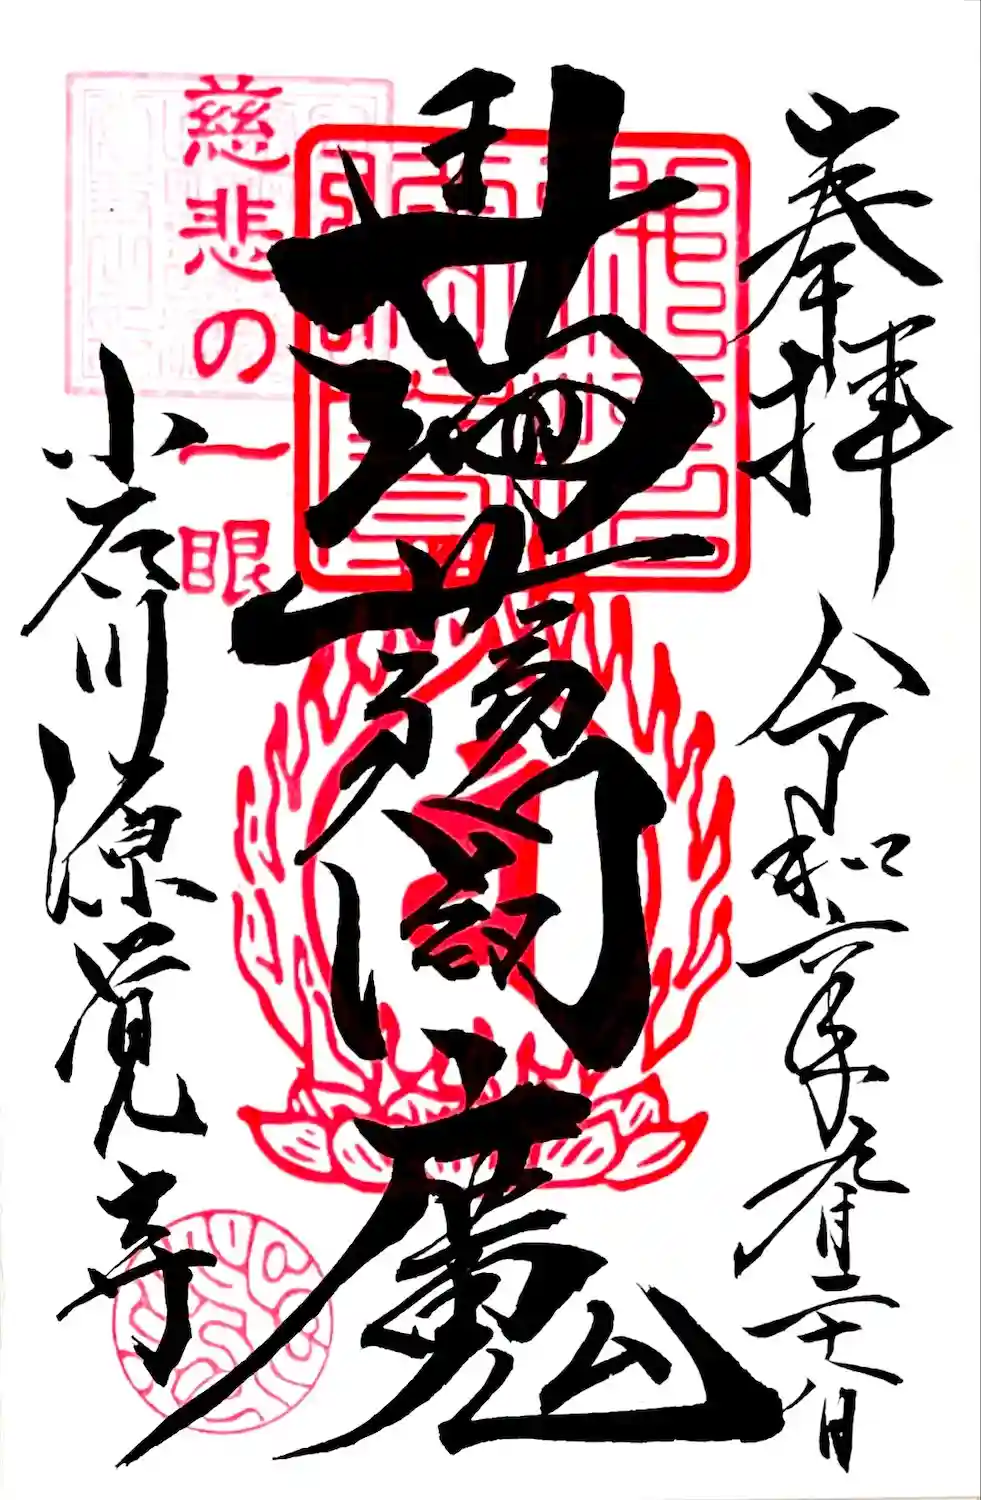 奉拝 令和六年九月二十八日
蒟蒻閻魔
慈悲の一眼
小石川源覚寺